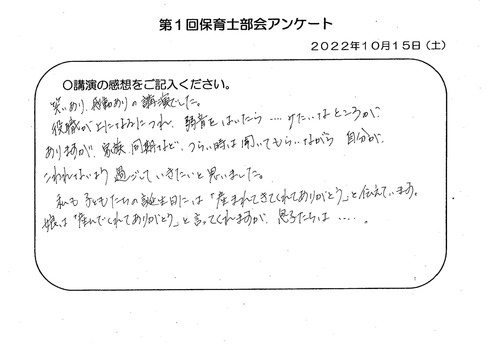 第１回保育士部会アンケート
２０２２年１０月１５日（土）
〇講演の感想をご記入ください。
笑いあり、感動ありの講演でした。
役職が上になるにつれ、弱音をはいたら‥‥けたいなところが
ありますが、家族、同期など、つらい時は聞いてもらいながら 自分が
こわれないよう過ごしていきたいと思いました。
私も子どもたちの誕生日には「産まれてきてくれてありがとう」と伝えています。
娘は「産んでくれてありがとう」と言ってくれますが、息子たちは‥‥。